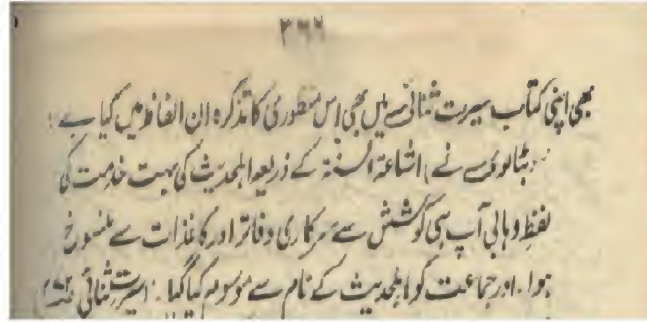 ۳۶۶
بھی اپنی کتاب سیرت ثنائی میں بھی اس منظوری کا تذکرہ ان الفاظ میں کیا ہے:
(بٹالوی نے) اشاعۃ السنۃ کے ذریعہ اہلحدیث کی بہت خدمت کی
لفظ وہابی آپ ہی کوشش سے سرکاری دفاتر اور کاغذات سے منسوخ
ہوا۔ اور جماعت کو اہلحدیث کے نام سے موسوم کیا گیا۔ (سیرت ثنائی